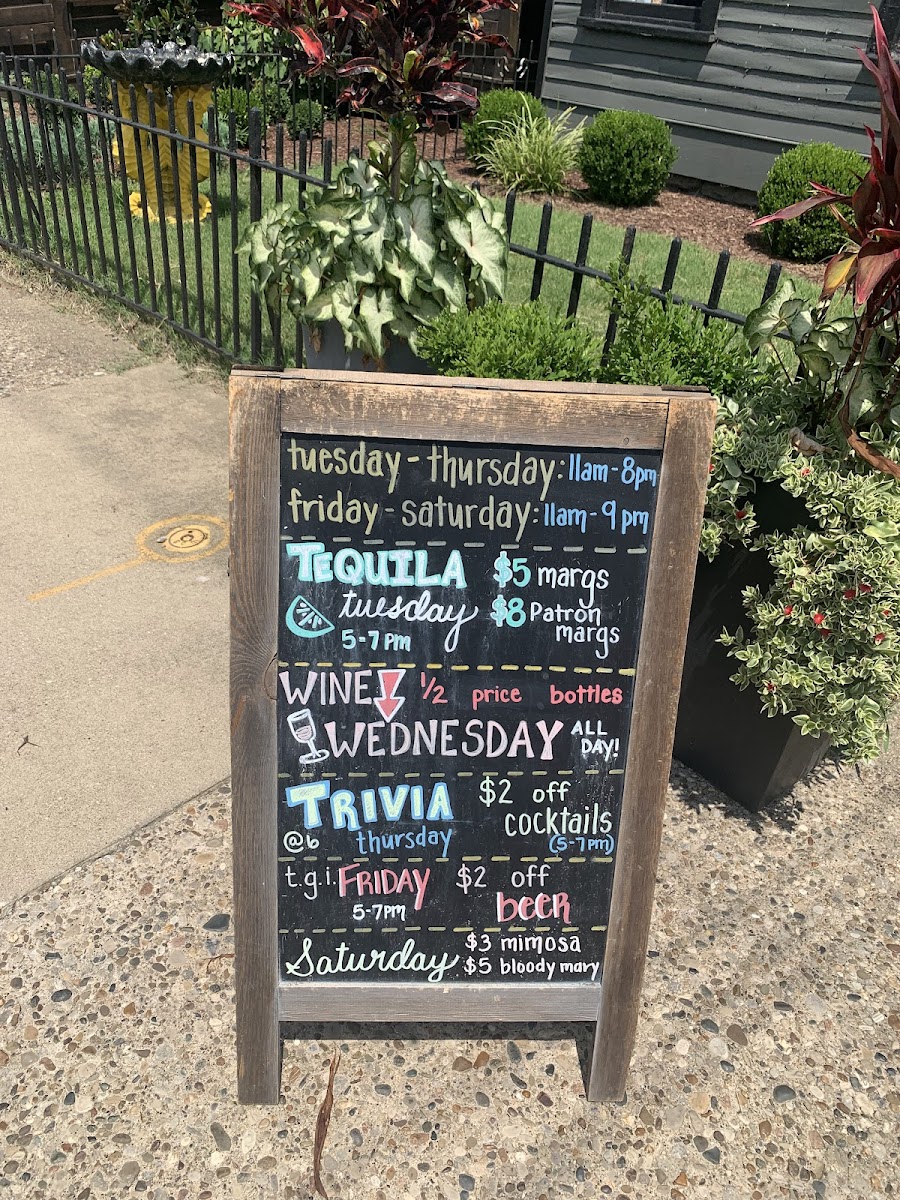 tuesday - thursday: 11am - 8pm
friday - saturday: 11am - 9pm
TEQUILA $5 margs
tuesday $8 Patron
margs
5-7 pm
WINE 1/2 price bottles
WEDNESDAY ALL
DAY!
TRIVIA $2 off
cocktails
@6 thursday (5-7pm)
t.g.i. FRIDAY $2 off
5-7pm beer
Saturday $3 mimosa
$5 bloody mary